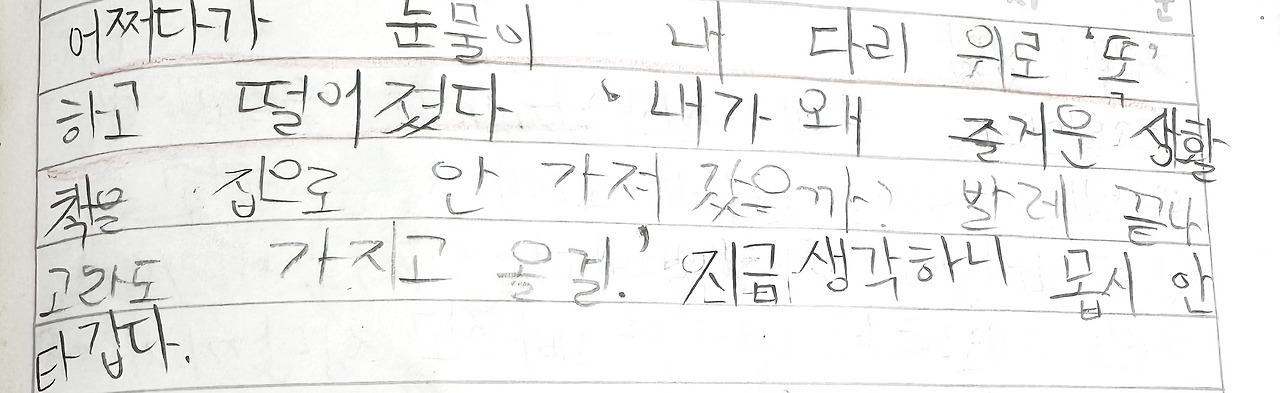 어쩌다가 눈물이 내 다리 위로 '똑'
하고 떨어졌다 '내가 왜 즐거운 생활
책을 집으로 안 가져 갔을까? 발레 끝나
고라도 가지고 올걸.' 지금 생각하니 몹시 안
타갑다.